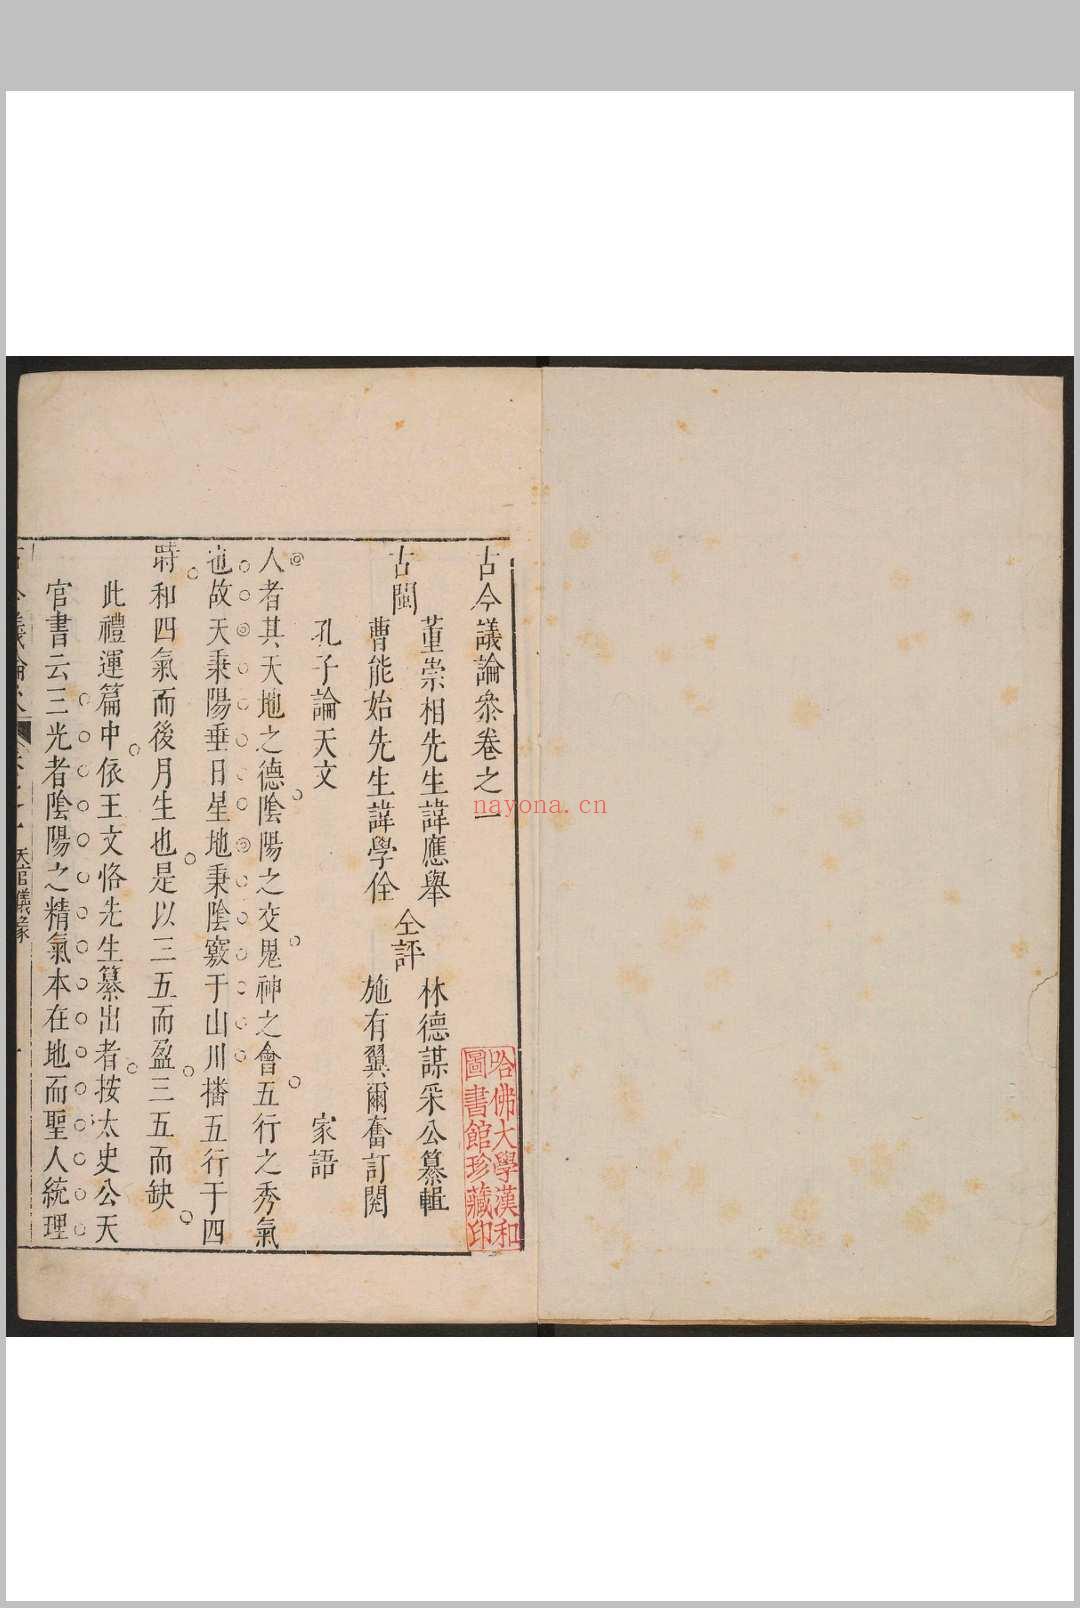 古今議論叅卷之一
古閩
董崇相先生諱應舉
曹能始先生諱學佺
仝評
林德謀采公纂輯
施有翼爾奮訂閱
孔子論天文 家語
人者其天地之德陰陽之交鬼神之會五行之秀氣
也故天秉陽垂日星地秉陰竅于山川播五行于四
時和四氣而後月生也是以三五而盈三五而缺
此禮運篇中依王文恪先生纂出者按太史公天
官書云三光者陰陽之精氣本在地而聖人統理
天官儀象
哈佛大學漢和
圖書館珍藏印
nayona.cn